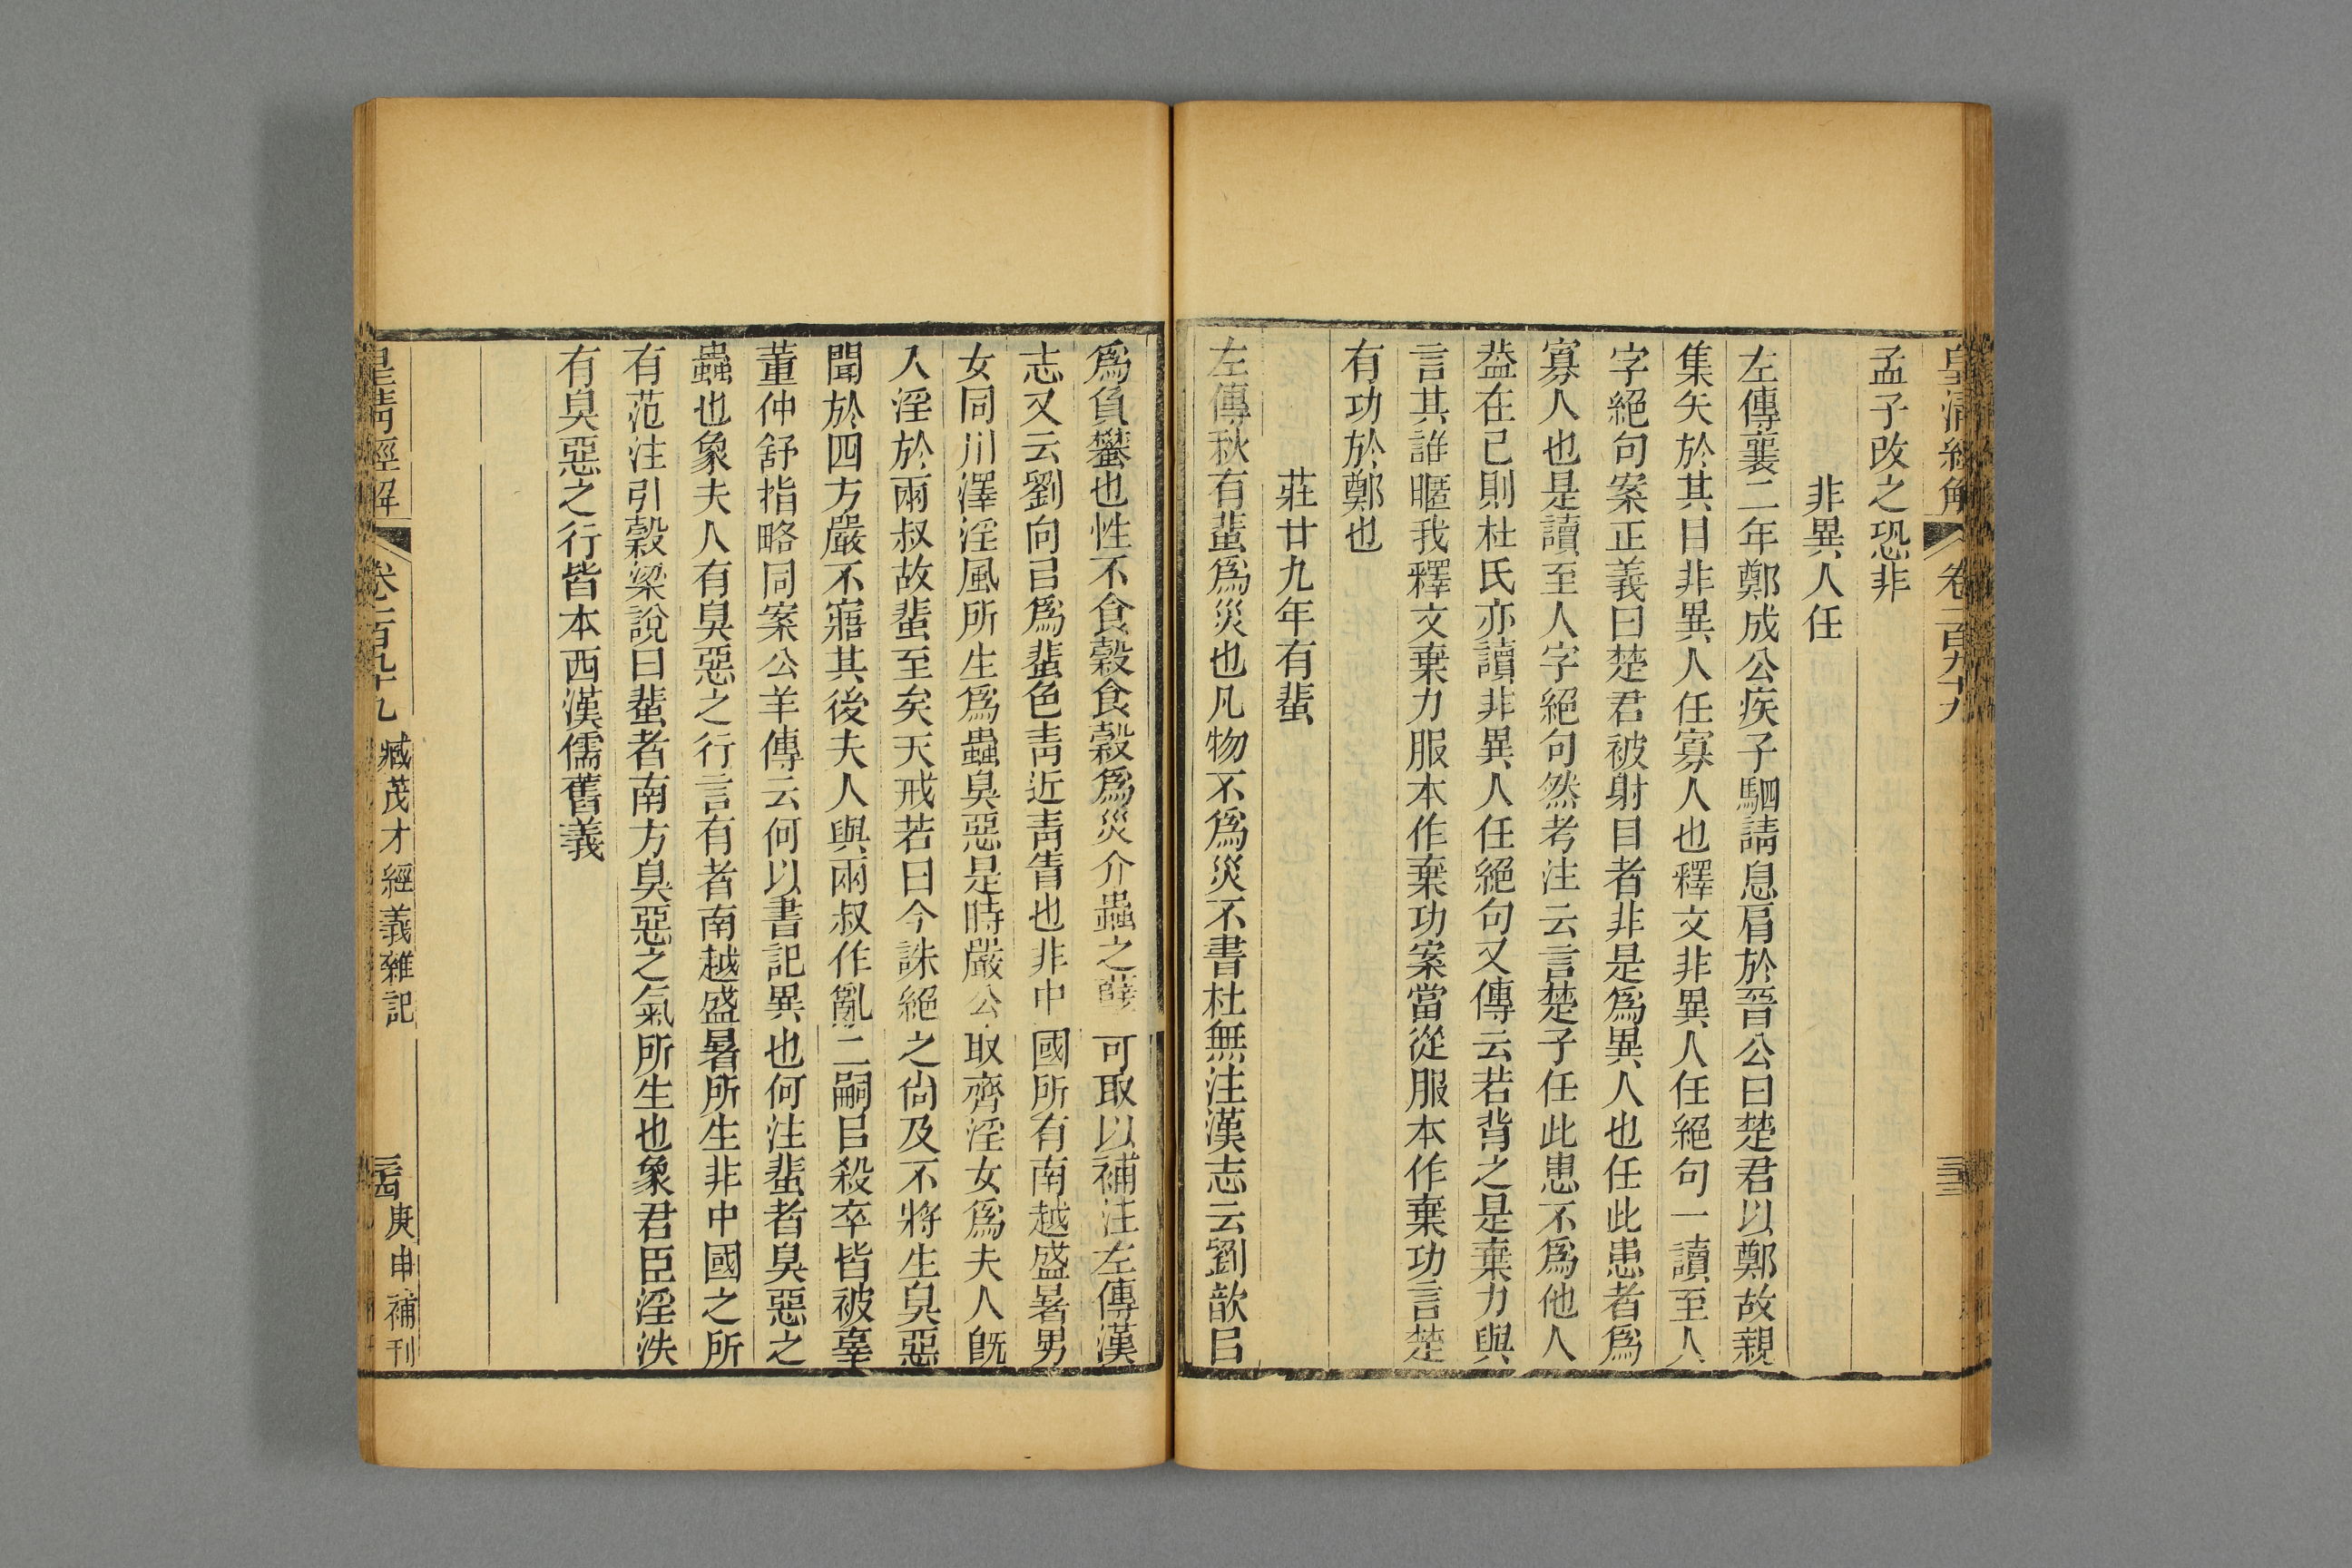 皇清經解 卷二百九十九
孟子改之恐非
非異人任
左傳襄二年鄭成公疾子駟請息肩於晉公曰楚君以鄭故親
集矢於其目非異人任寡人也釋文非異人任絕句一讀至人
字絕句案正義曰楚君被射目者非是爲異人也任此患者爲
寡人也是讀至人字絕句然考注云言楚子任此患不爲他人
葢在己則杜氏亦讀非異人任絕句又傳云若背之是棄力與
言其誰暱我釋文棄力服本作棄功案當從服本作棄功言楚
有功於鄭也
莊廿九年有蜚
左傳秋有蜚爲災也凡物不爲災不書杜無注漢志云劉歆㠯
爲負蠜也性不食穀食穀爲災介蟲之孽可取以補注左傳漢
志又云劉向㠯爲蜚色青近青眚也非中國所有南越盛暑男
女同川澤淫風所生爲蟲臭惡是時嚴公取齊淫女爲夫人旣
入淫於兩叔故蜚至矣天戒若曰今誅絕之尙及不將生臭惡
聞於四方嚴不寤其後夫人與兩叔作亂二嗣㠯殺卒皆被辜
董仲舒指略同案公羊傳云何以書記異也何注蜚者臭惡之
蟲也象夫人有臭惡之行言有者南越盛暑所生非中國之所
有范注引穀梁說曰蜚者南方臭惡之氣所生也象君臣淫泆
有臭惡之行皆本西漢儒舊義
皇清經解 卷二百九十九 臧茂才經義雜記 庚申補刊